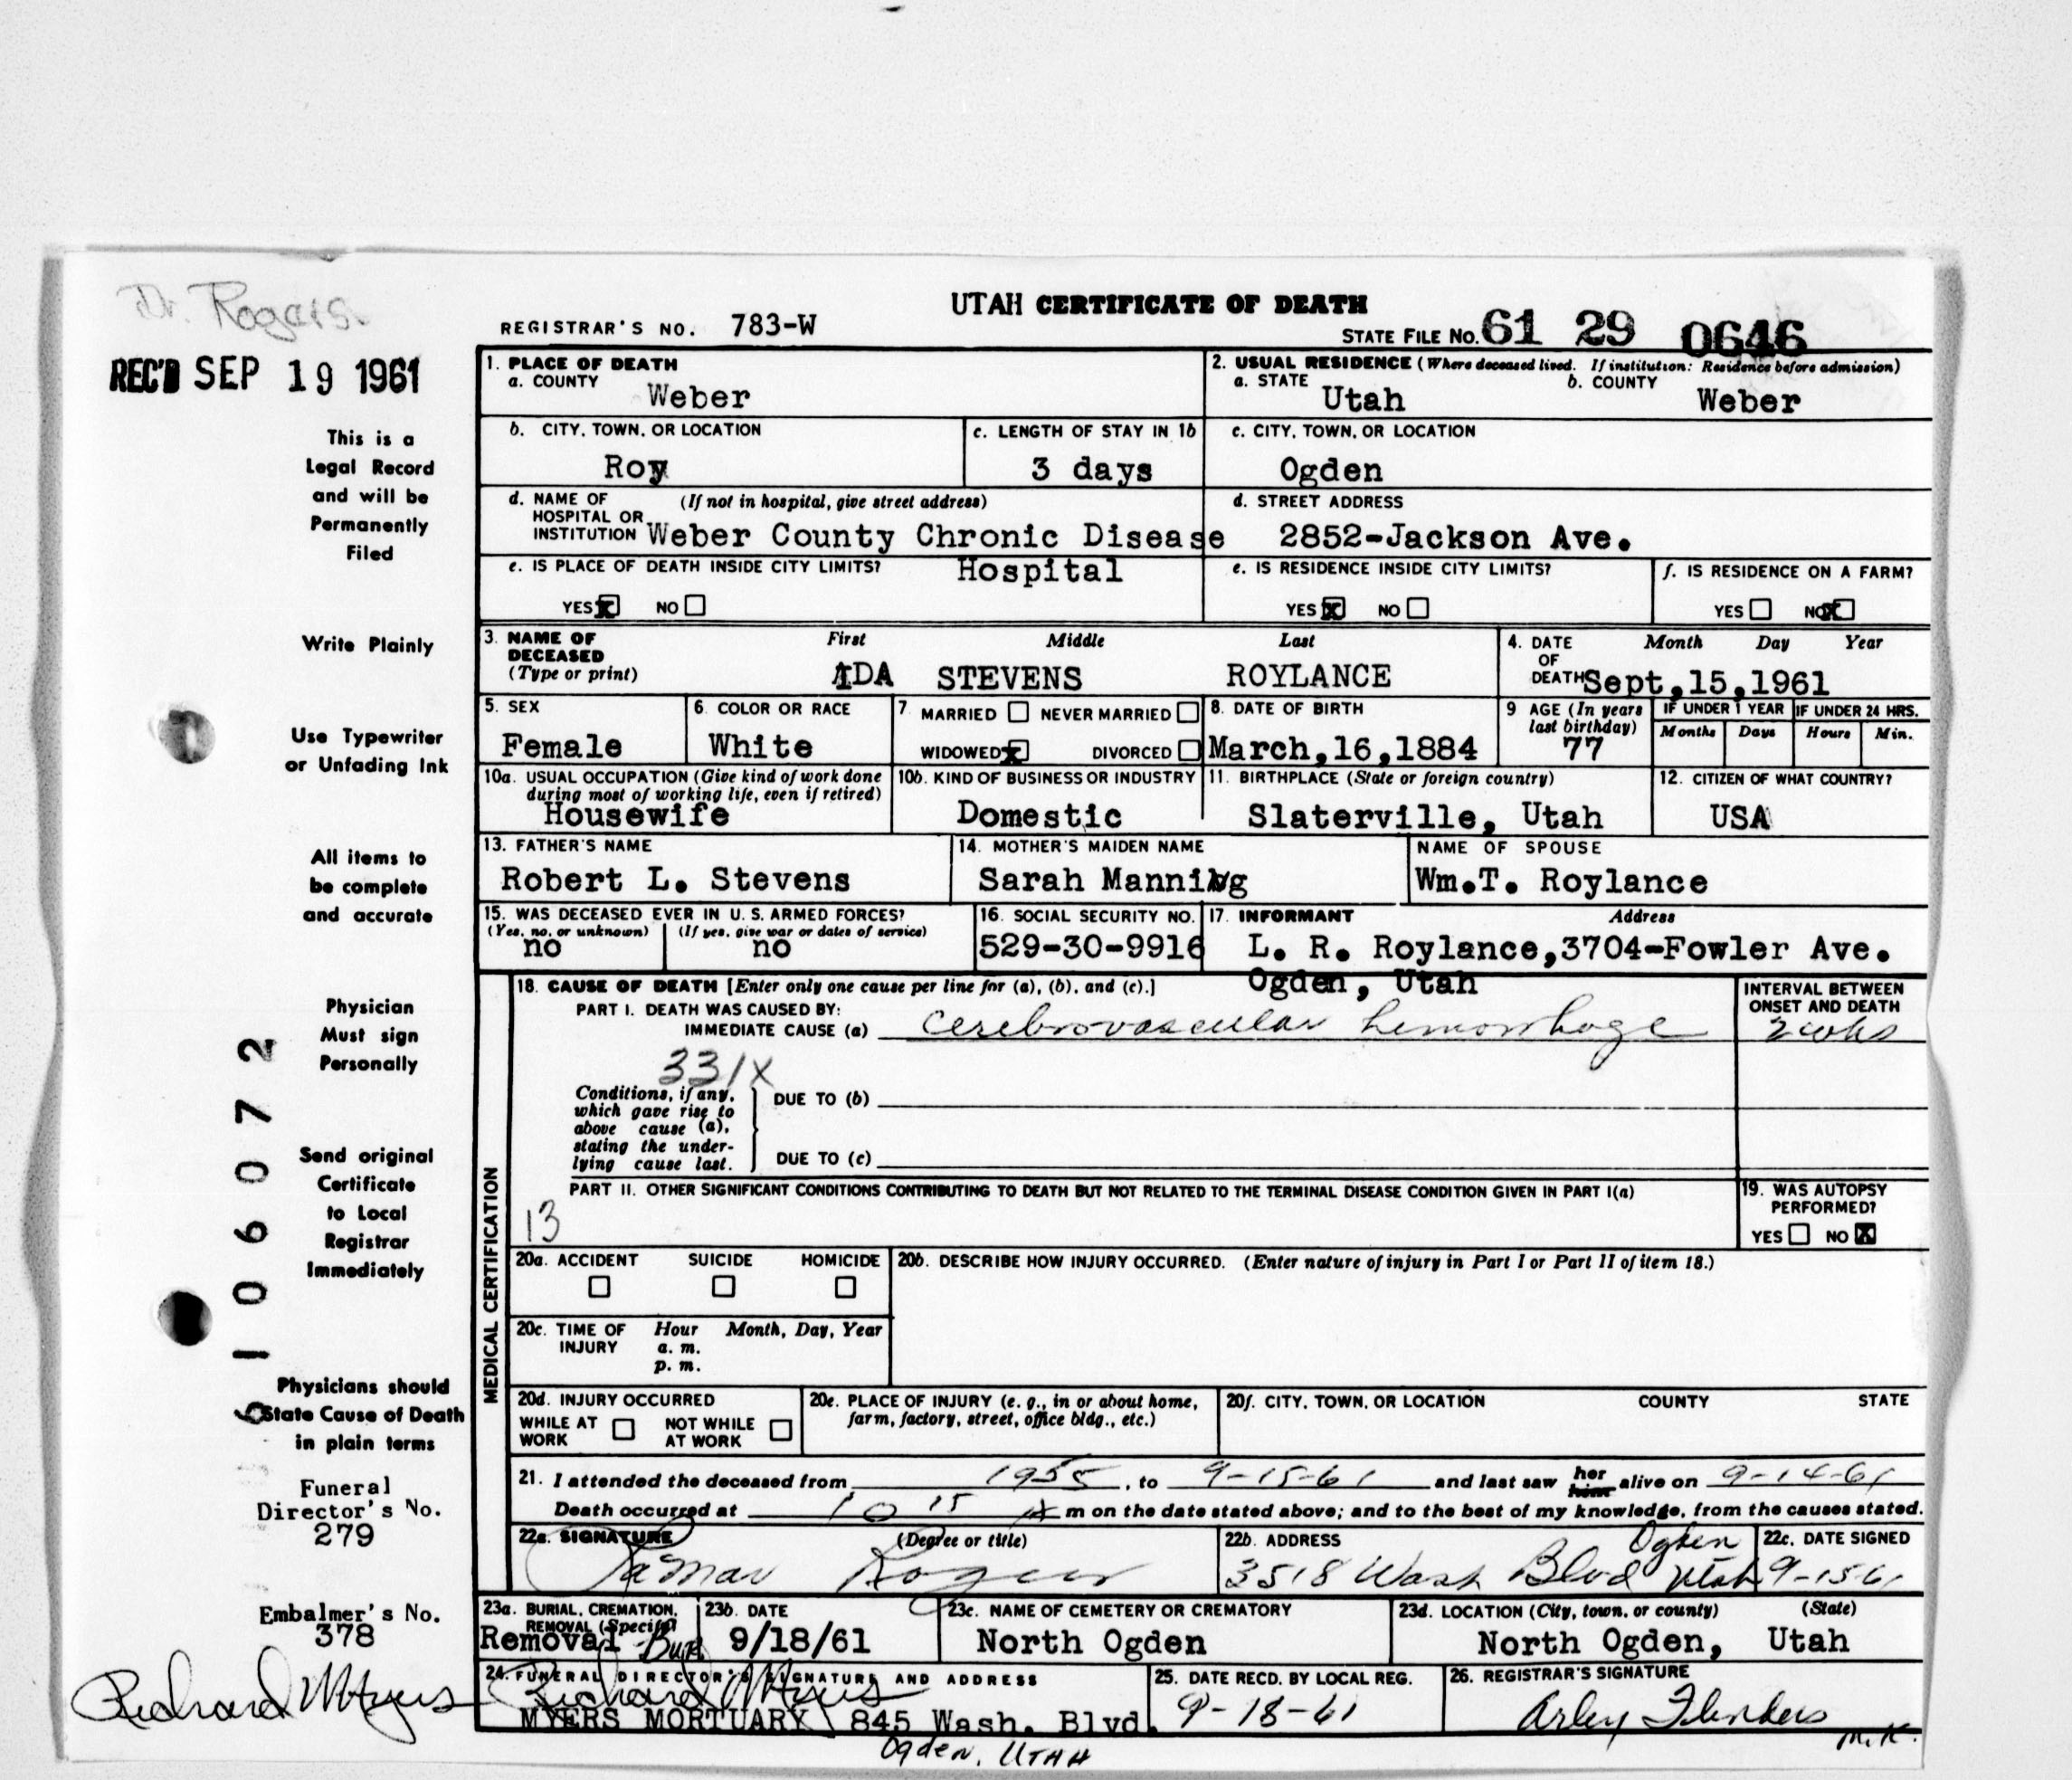 Dr. Rogers.
UTAH CERTIFICATE OF DEATH
REGISTRAR'S NO. 783-W
STATE FILE NO. 61 29 0646
REC'D SEP 19 1961
This is a
Legal Record
and will be
Permanently
Filed
Write Plainly
Use Typewriter
or Unfading Ink
All items to
be complete
and accurate
Physician
Must sign
Personally
Send original
Certificate
to Local
Registrar
Immediately
Physicians should
State Cause of Death
in plain terms
Funeral
Director's No.
279
Embalmer's No.
378
Richard Myers
106072
1. PLACE OF DEATH
a. COUNTY Weber
2. USUAL RESIDENCE (Where deceased lived. If institution: Residence before admission)
a. STATE Utah b. COUNTY Weber
b. CITY, TOWN, OR LOCATION
Roy
c. LENGTH OF STAY IN 1b
3 days
c. CITY, TOWN, OR LOCATION
Ogden
d. NAME OF (If not in hospital, give street address)
HOSPITAL OR
INSTITUTION Weber County Chronic Disease
Hospital
d. STREET ADDRESS
2852-Jackson Ave.
e. IS PLACE OF DEATH INSIDE CITY LIMITS?
YES X NO
e. IS RESIDENCE INSIDE CITY LIMITS?
YES X NO
f. IS RESIDENCE ON A FARM?
YES NO X
3. NAME OF
DECEASED
(Type or print)
First Middle Last
IDA STEVENS ROYLANCE
4. DATE Month Day Year
OF
DEATH Sept,15,1961
5. SEX
Female
6. COLOR OR RACE
White
7 MARRIED NEVER MARRIED
WIDOWED X DIVORCED
8. DATE OF BIRTH
March,16,1884
9 AGE (In years
last birthday)
77
IF UNDER 1 YEAR IF UNDER 24 HRS.
Months Days Hours Min.
10a. USUAL OCCUPATION (Give kind of work done
during most of working life, even if retired)
Housewife
10b. KIND OF BUSINESS OR INDUSTRY
Domestic
11. BIRTHPLACE (State or foreign country)
Slaterville, Utah
12. CITIZEN OF WHAT COUNTRY?
USA
13. FATHER'S NAME
Robert L. Stevens
14. MOTHER'S MAIDEN NAME
Sarah Manning
NAME OF SPOUSE
Wm.T. Roylance
15. WAS DECEASED EVER IN U. S. ARMED FORCES?
(Yes, no, or unknown) (If yes, give war or dates of service)
no no
16. SOCIAL SECURITY NO.
529-30-9916
17. INFORMANT Address
L. R. Roylance,3704-Fowler Ave.
Ogden, Utah
MEDICAL CERTIFICATION
18. CAUSE OF DEATH [Enter only one cause per line for (a), (b), and (c).]
PART I. DEATH WAS CAUSED BY:
IMMEDIATE CAUSE (a) Cerebrovascular hemorrhage
INTERVAL BETWEEN
ONSET AND DEATH
2 wks
331X
Conditions, if any,
which gave rise to
above cause (a),
stating the under-
lying cause last.
DUE TO (b)
DUE TO (c)
PART II. OTHER SIGNIFICANT CONDITIONS CONTRIBUTING TO DEATH BUT NOT RELATED TO THE TERMINAL DISEASE CONDITION GIVEN IN PART I(a)
13
19. WAS AUTOPSY
PERFORMED?
YES NO X
20a. ACCIDENT SUICIDE HOMICIDE
20b. DESCRIBE HOW INJURY OCCURRED. (Enter nature of injury in Part I or Part II of item 18.)
20c. TIME OF Hour Month, Day, Year
INJURY a. m.
p. m.
20d. INJURY OCCURRED
WHILE AT NOT WHILE
WORK AT WORK
20e. PLACE OF INJURY (e. g., in or about home,
farm, factory, street, office bldg., etc.)
20f. CITY, TOWN, OR LOCATION COUNTY STATE
21. I attended the deceased from 1955, to 9-15-61 and last saw her him alive on 9-14-61
Death occurred at 10 15 A m on the date stated above; and to the best of my knowledge, from the causes stated.
22a. SIGNATURE (Degree or title)
LaMar Rogers
22b. ADDRESS
3518 Wash Blvd Ogden Utah
22c. DATE SIGNED
9-15-61
23a. BURIAL, CREMATION,
REMOVAL (Specify)
Removal Bur
23b. DATE
9/18/61
23c. NAME OF CEMETERY OR CREMATORY
North Ogden
23d. LOCATION (City, town, or county) (State)
North Ogden, Utah
24. FUNERAL DIRECTOR'S SIGNATURE AND ADDRESS
Richard Myers
MYERS MORTUARY 845 Wash. Blvd.
Ogden, UTAH
25. DATE RECD. BY LOCAL REG.
9-18-61
26. REGISTRAR'S SIGNATURE
Arley Flinders
M.K.